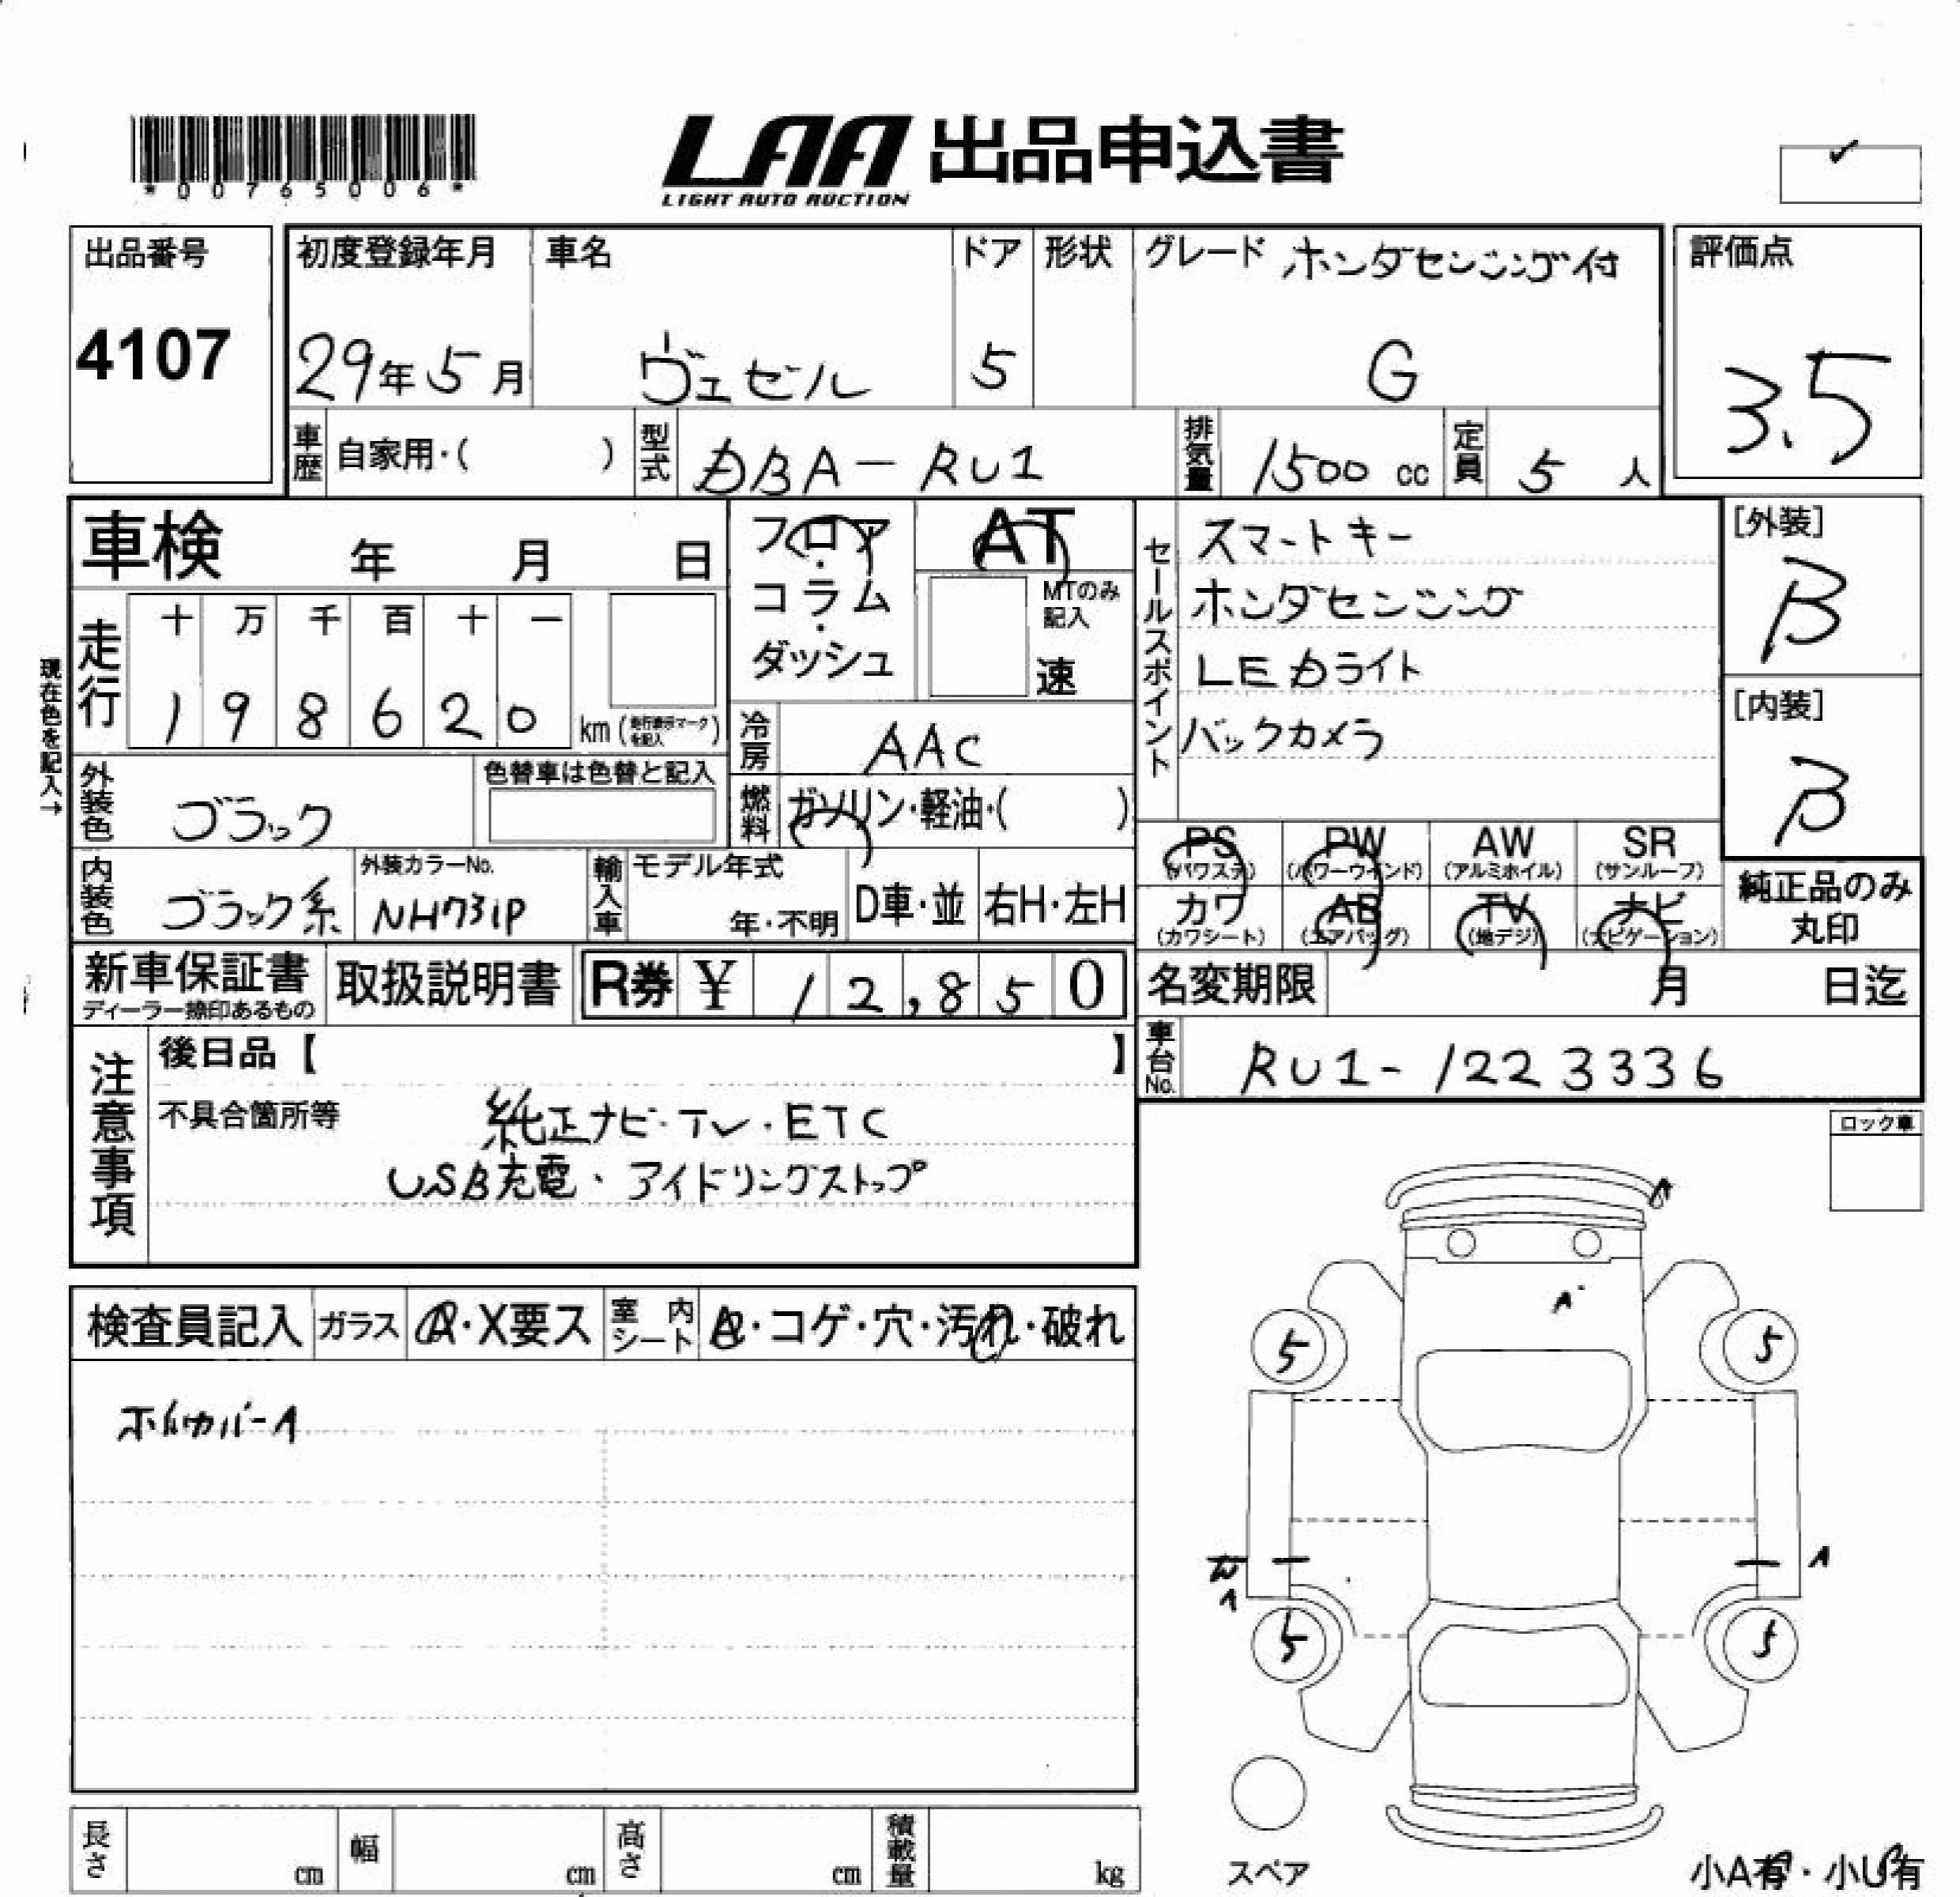 *00765006*
LAA 出品申込書
LIGHT AUTO AUCTION
出品番号
4107
初度登録年月
29年5月
車名
ヴェゼル
ドア
5
形状
グレード ホンダセンシング付
G
評価点
3.5
車歴 自家用・( )
型式 DBA-RU1
排気量 1500 cc
定員 5 人
車検 年 月 日
現在色を記入→
走行
十 万 千 百 十 一
1 9 8 6 2 0 km (走行表示マークを記入)
フロア・コラム・ダッシュ
AT
MTのみ記入
速
冷房 AAC
燃料 ガソリン・軽油・( )
外装色 ブラック
色替車は色替と記入
内装色 ブラック系
外装カラーNo.
NH731P
輸入車 モデル年式
年・不明
D車・並
右H・左H
セールスポイント
スマートキー
ホンダセンシング
LEDライト
バックカメラ
[外装]
B
[内装]
B
PS (パワステ) PW (パワーウインド) AW (アルミホイル) SR (サンルーフ)
カワ (カワシート) AB (エアバッグ) TV (地デジ) ナビ (ナビゲーション)
純正品のみ
丸印
新車保証書
ディーラー捺印あるもの
取扱説明書
R券 ¥ 12,850
名変期限 月 日迄
車台No. RU1-1223336
注意事項
後日品【 】
不具合箇所等 純正ナビ・TV・ETC
USB充電・アイドリングストップ
ロック車
検査員記入 ガラス A・X要ス 室内シート コゲ・穴・汚れ・破れ
ホイルカバーA
A
A
5 5
A
A
5 5
スペア
長さ cm 幅 cm 高さ cm 積載量 kg
小A有・小U有